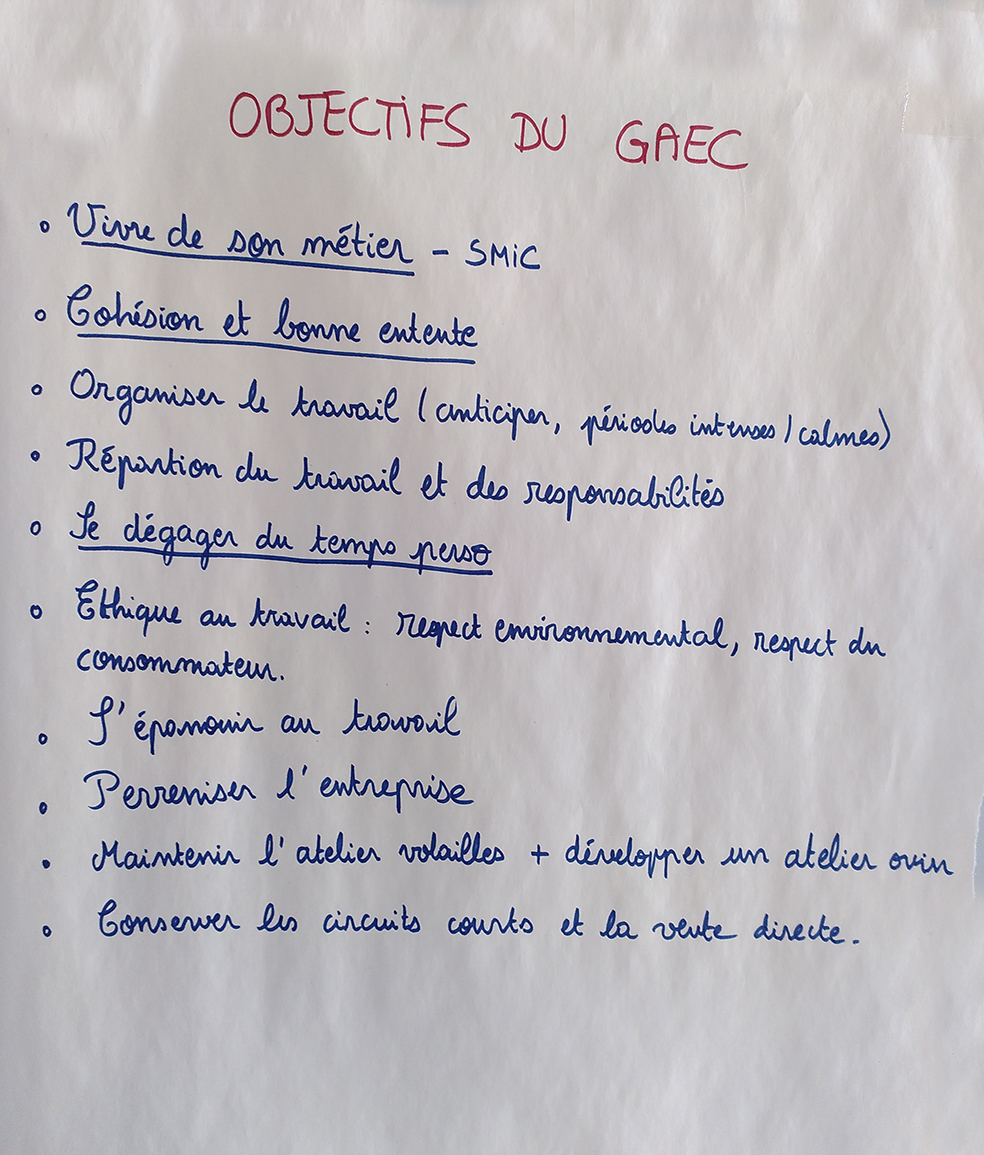 OBJECTIFS DU GAEC
° Vivre de son métier - SMIC
° Cohésion et bonne entente
° Organiser le travail (anticiper, périodes intenses / calmes)
° Répartion du travail et des responsabilités
° Se dégager du temps perso
° Ethique au travail : respect environnemental, respect du
consommateur.
° S'épanouir au travail
° Perreniser l'entreprise
° Maintenir l'atelier volailles + développer un atelier ovin
° Conserver les circuits courts et la vente directe.